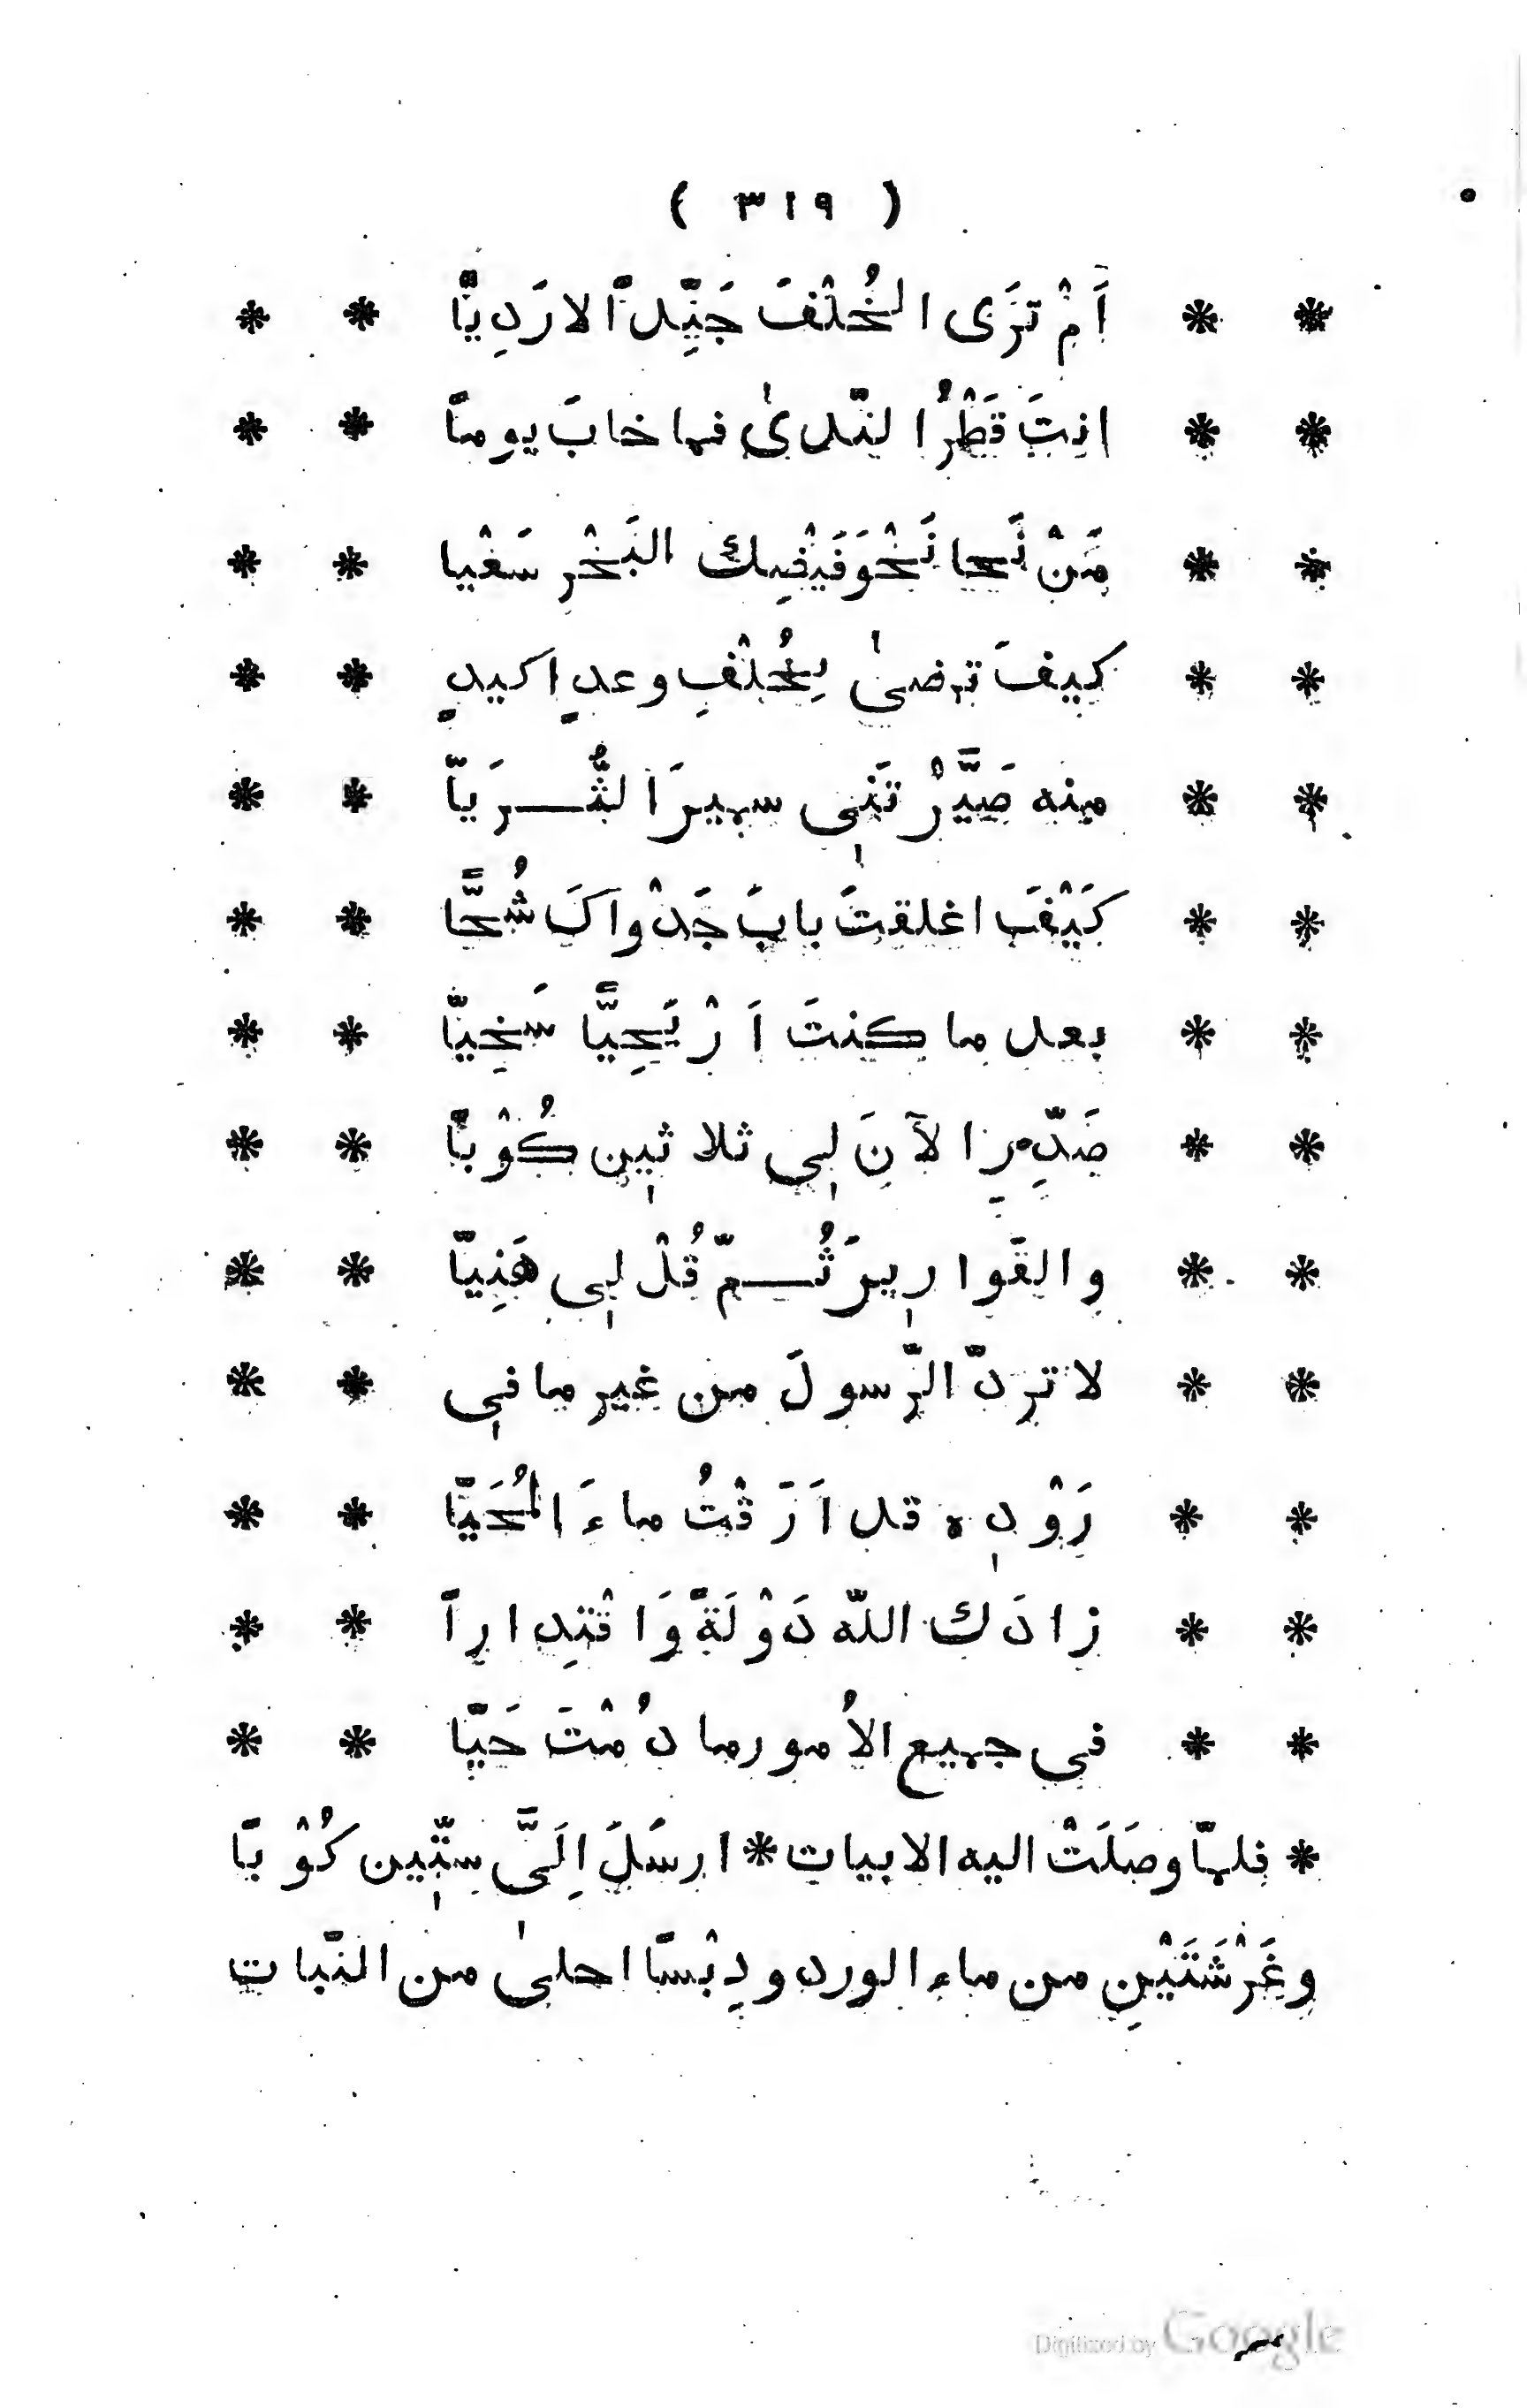 ( ٣١٩ )
* * اَمْ تَرَى الخُلْفَ جَيِّداً لا رَدِيًّا * *
* * انتَ قَطْرُ النّدىٰ فما خابَ يوماً * *
* * مَنْ نَحا نَحْوَ فَيْفِك البَحْرِ سَعْيا * *
* * كيفَ ترضىٰ بِخُلْفِ وعدٍ اكيدٍ * *
* * منه صَيَّرْتَنِى سميرَ الثُّريَاّ * *
* * كَيْفَ اغلقتَ بابَ جَدْواكَ شُحًّا * *
* * بعد ما كنتَ اَرْيَحِيًّا سَخِيّا * *
* * ضَدِّرِ الآنَ لِى ثلاثين كُوْبًا * *
* * والقَوارِيرَ ثُمّ قُلْ لِى هَنِيّا * *
* * لا تردّ الرّسولَ من غير ما فى * *
* * رَوْدِه قد اَرَقْتُ ماءَ المُحَيّا * *
* * زادَك اللّه دَوْلَةً وَاقْتِداراً * *
* * فى جميع الاُمور ما دُمْتَ حَيّا * *
* فلمّا وصَلَتْ اليه الابيات * ارسَلَ اِلَىَّ ستّين كُوْبًا
وغَرْشَتَيْنِ من ماء الورد ودِبْسًا احلىٰ من النّبات
Digitized by Google